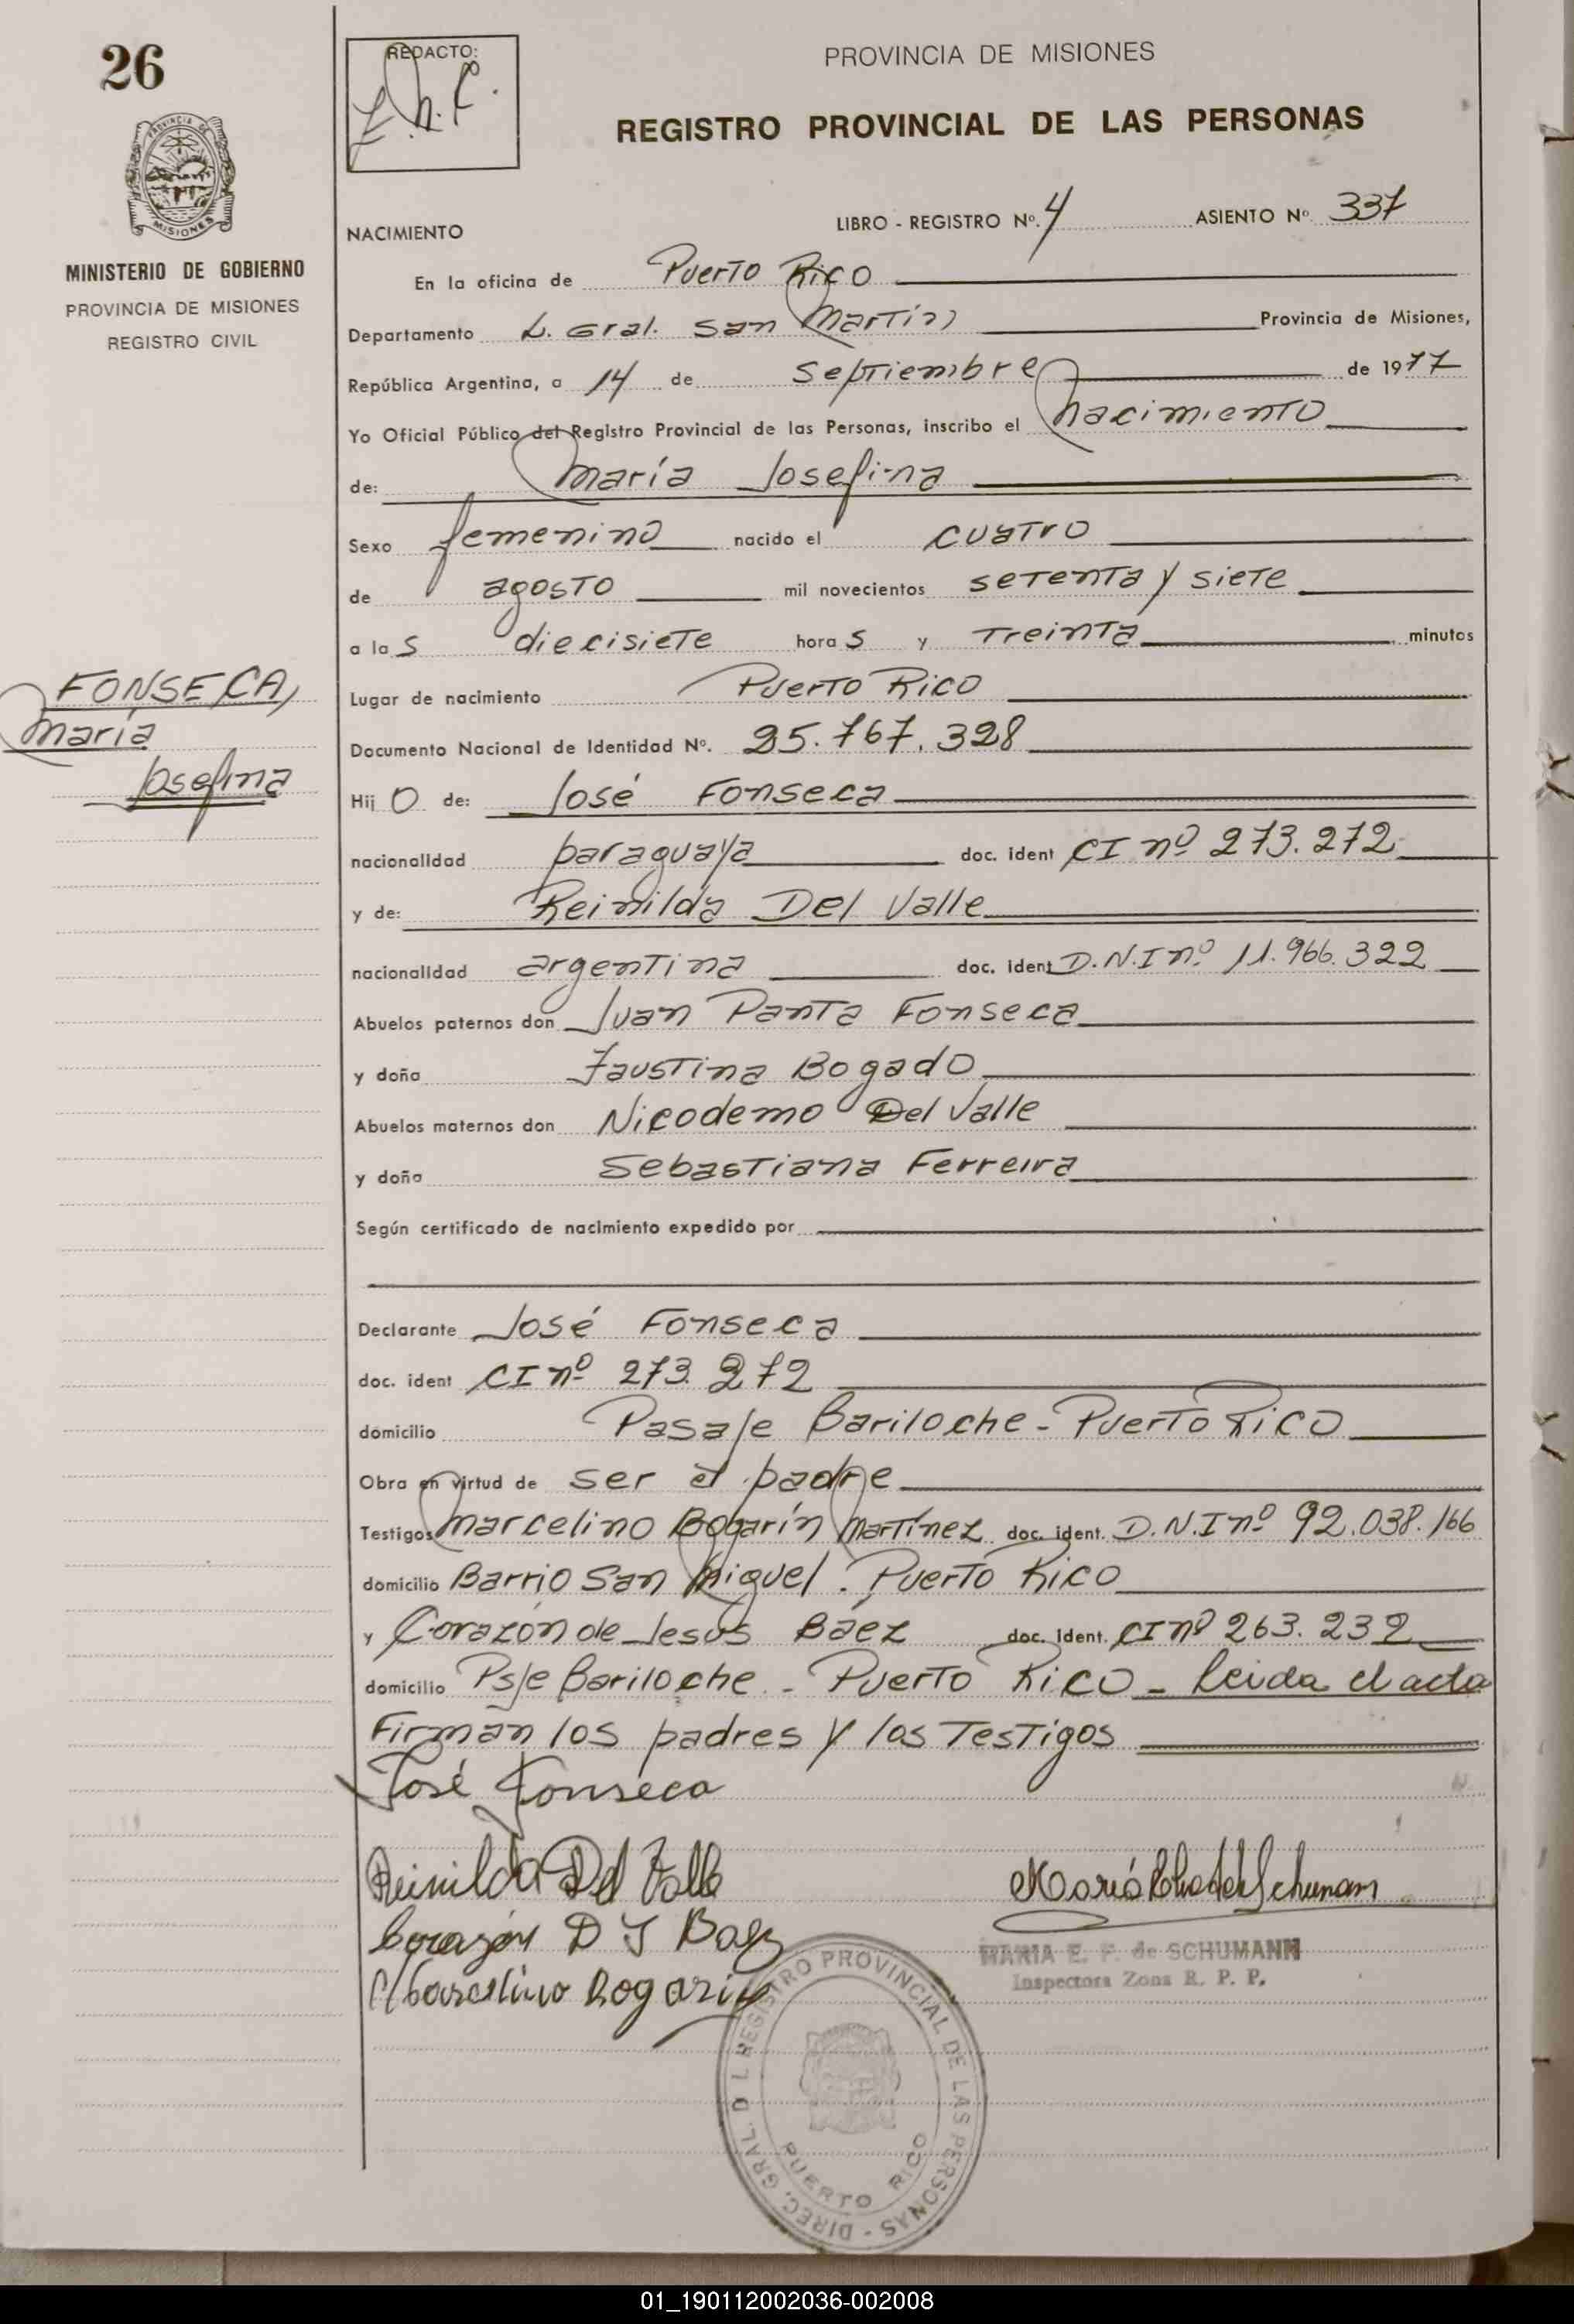 26
REDACTO:
PROVINCIA DE MISIONES
REGISTRO PROVINCIAL DE LAS PERSONAS
PROVINCIA DE
MISIONES
MINISTERIO DE GOBIERNO
PROVINCIA DE MISIONES
REGISTRO CIVIL
NACIMIENTO
LIBRO - REGISTRO Nº. 4 ASIENTO Nº 337
En la oficina de Puerto Rico
Departamento L. Gral. San Martín Provincia de Misiones,
República Argentina, a 14 de septiembre de 1977
Yo Oficial Público del Registro Provincial de las Personas, inscribo el nacimiento
de: María Josefina
Sexo femenino nacido el cuatro
de agosto mil novecientos setenta y siete
a las diecisiete horas y treinta minutos
FONSECA,
María
Josefina
Lugar de nacimiento Puerto Rico
Documento Nacional de Identidad Nº. 25.767.328
Hijo de: José Fonseca
nacionalidad paraguaya doc. ident CI nº 273.272
y de: Reinilda Del Valle
nacionalidad argentina doc. ident D.N.I nº 11.966.322
Abuelos paternos don Juan Panta Fonseca
y doña Faustina Bogado
Abuelos maternos don Nicodemo Del Valle
y doña Sebastiana Ferreira
Según certificado de nacimiento expedido por
Declarante José Fonseca
doc. ident CI nº 273.272
domicilio Pasaje Bariloche - Puerto Rico
Obra en virtud de ser el padre
Testigos Marcelino Bogarín Martínez doc. ident. D.N.I nº 92.038.166
domicilio Barrio San Miguel. Puerto Rico
y Corazón de Jesus Báez doc. ident. CI nº 263.232
domicilio Psje Bariloche - Puerto Rico - leida el acta
Firman los padres y los Testigos
José Fonseca
Reinilda Del Valle
Corazón D J Baez
Marcelino Bogarin
MARIA E. F. de SCHUMANN
Inspectora Zona R. P. P.
DIREC. GRAL. DEL REGISTRO PROVINCIAL DE LAS PERSONAS -
PUERTO RICO
01_190112002036-002008